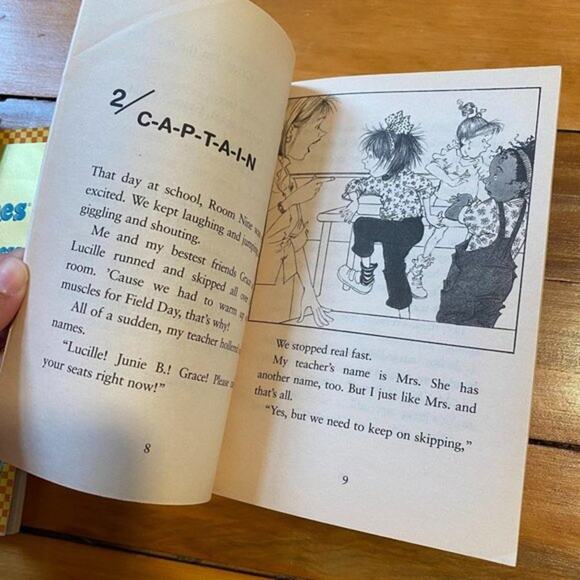 2/
C-A-P-T-A-I-N
That day at school, Room Nine was
excited. We kept laughing and jumping
giggling and shouting.
Me and my bestest friends Grace
Lucille runned and skipped all over
room. 'Cause we had to warm up
muscles for Field Day, that's why!
All of a sudden, my teacher hollered
names.
"Lucille! Junie B.! Grace! Please
your seats right now!"
8
We stopped real fast.
My teacher's name is Mrs. She has
another name, too. But I just like Mrs. and
that's all.
"Yes, but we need to keep on skipping,"
9